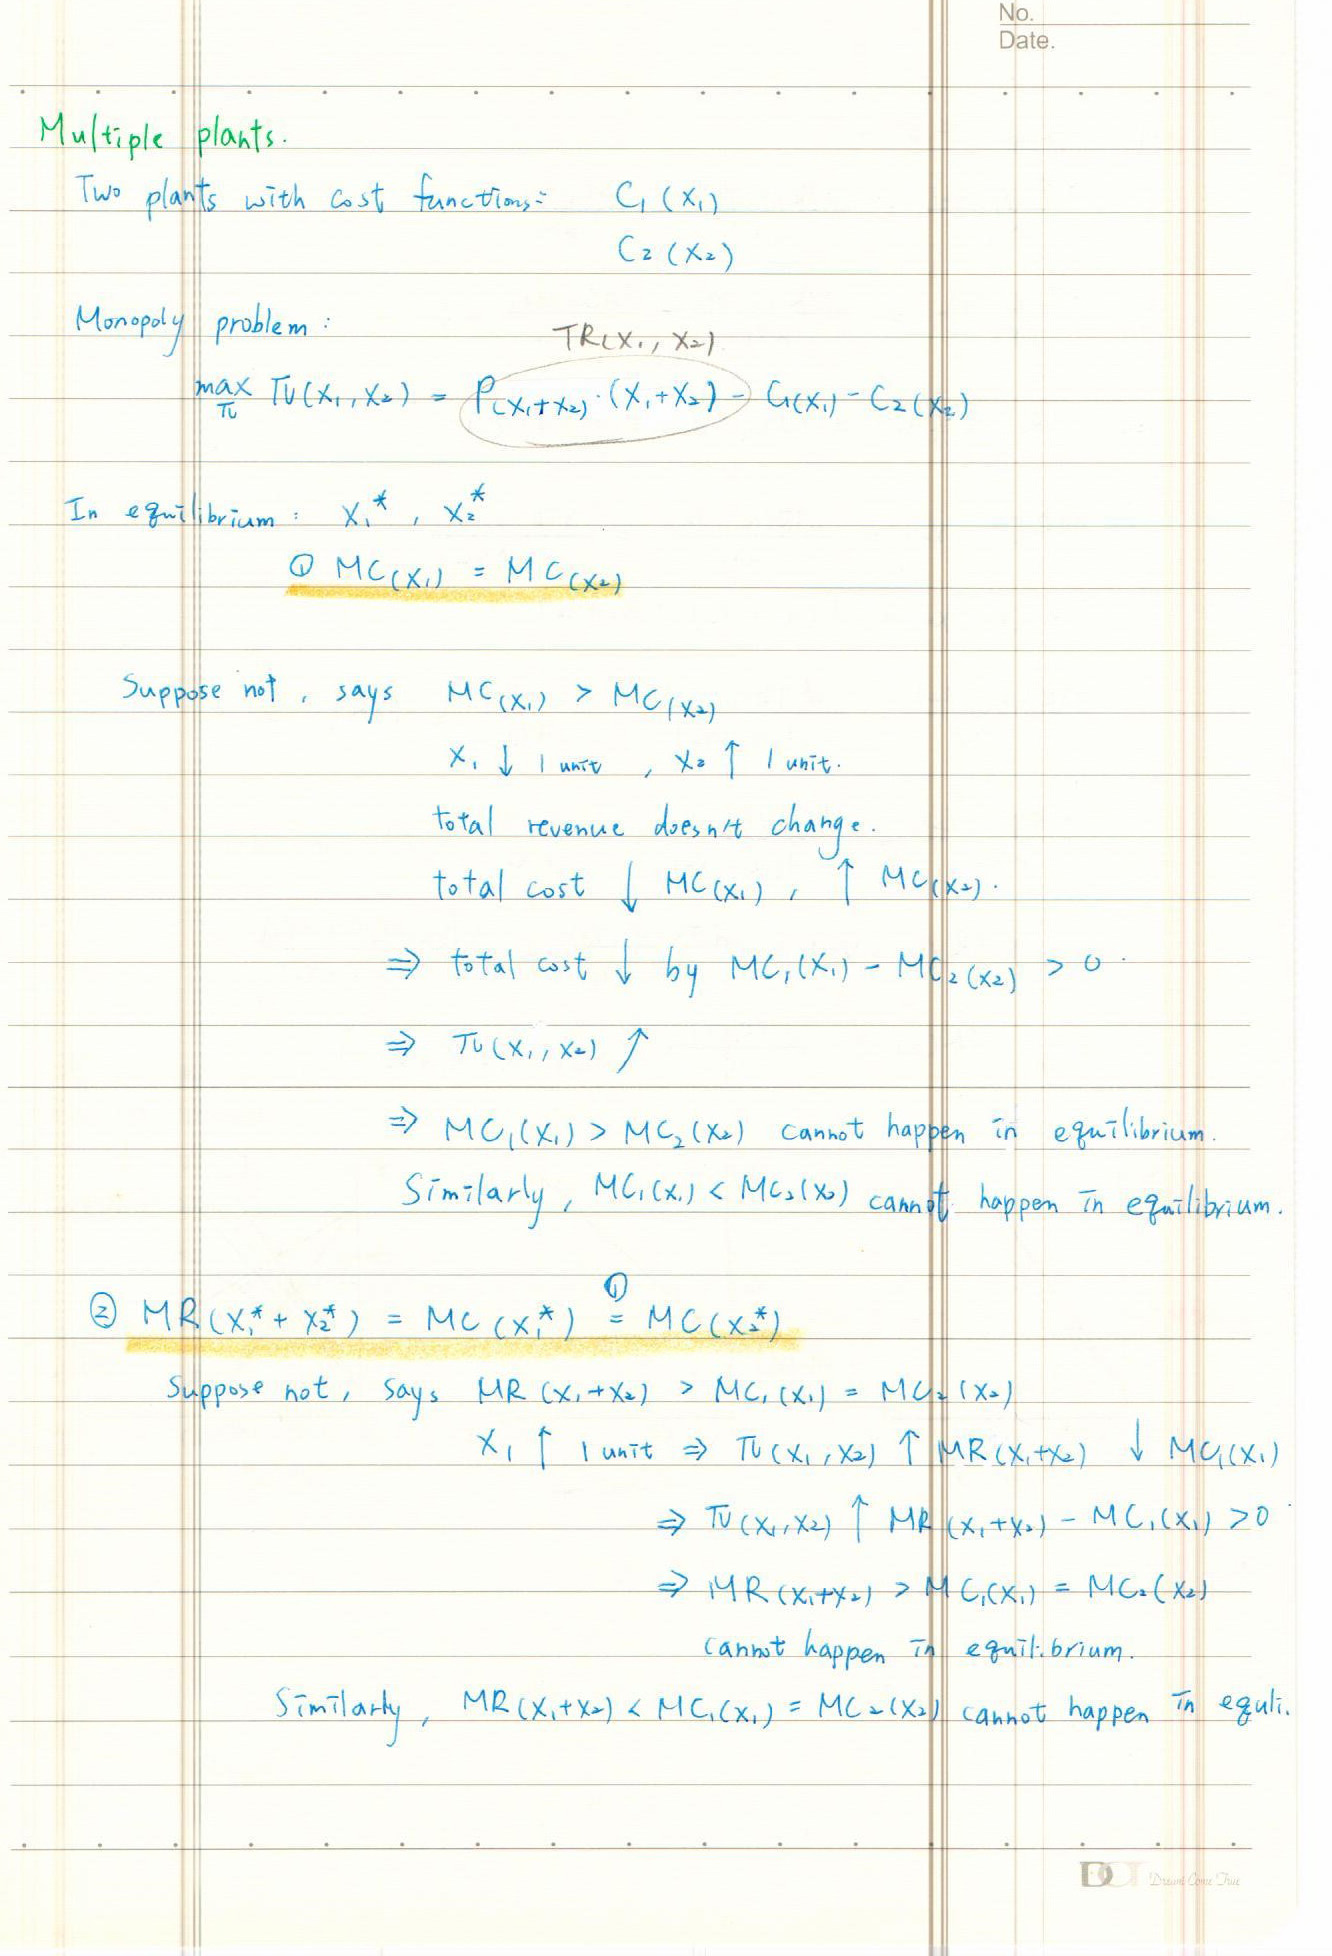 No.
Date.
Multiple plants.
Two plants with cost functions: C₁(X₁)
C₂(X₂)
Monopoly problem:
TR(X₁, X₂)
max π π(X₁, X₂) = P(X₁+X₂)·(X₁+X₂) - C₁(X₁) - C₂(X₂)
In equilibrium: X₁*, X₂*
① MC(X₁) = MC(X₂)
Suppose not, says MC(X₁) > MC(X₂)
X₁ ↓ 1 unit, X₂ ↑ 1 unit.
total revenue doesn't change.
total cost ↓ MC(X₁), ↑ MC(X₂).
⇒ total cost ↓ by MC₁(X₁) - MC₂(X₂) > 0
⇒ π(X₁, X₂) ↑
⇒ MC₁(X₁) > MC₂(X₂) cannot happen in equilibrium.
Similarly, MC₁(X₁) < MC₂(X₂) cannot happen in equilibrium.
① 
② MR(X₁* + X₂*) = MC(X₁*) = MC(X₂*)
Suppose not, says MR(X₁+X₂) > MC₁(X₁) = MC₂(X₂)
X₁ ↑ 1 unit ⇒ π(X₁, X₂) ↑ MR(X₁+X₂) ↓ MC₁(X₁)
⇒ π(X₁, X₂) ↑ MR(X₁+X₂) - MC₁(X₁) > 0
⇒ MR(X₁+X₂) > MC₁(X₁) = MC₂(X₂)
cannot happen in equilibrium.
Similarly, MR(X₁+X₂) < MC₁(X₁) = MC₂(X₂) cannot happen in equli.
DCT Dream Come True